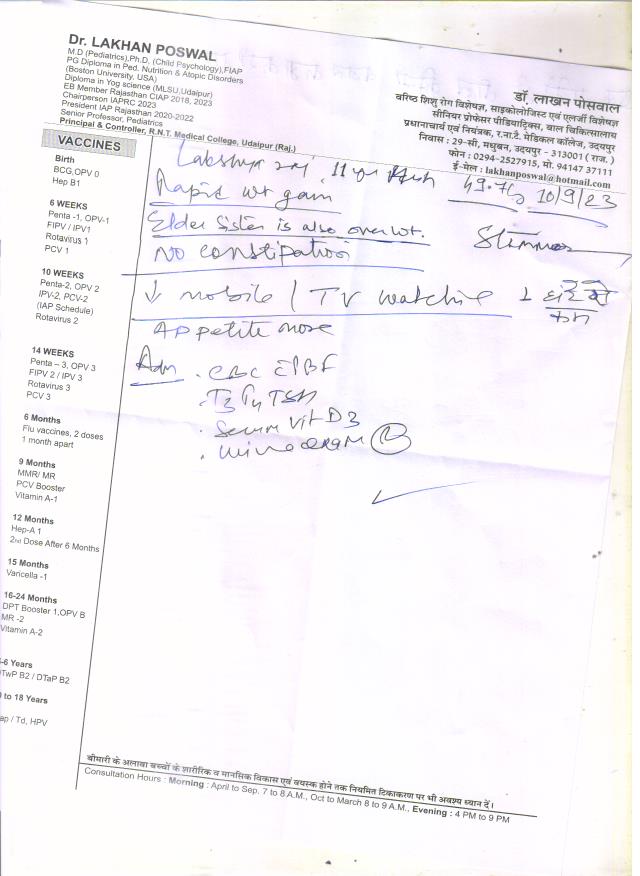 Dr. LAKHAN POSWAL
M.D (Pediatrics),Ph.D, (Child Psychology),FIAP
PG Diploma in Ped. Nutrition & Atopic Disorders
(Boston University, USA)
Diploma in Yog science (MLSU,Udaipur)
EB Member Rajasthan CIAP 2018, 2023
Chairperson IAPRC 2023
President IAP Rajasthan 2020-2022
Senior Professor, Pediatrics
Principal & Controller, R.N.T. Medical College, Udaipur (Raj.)
डॉ. लाखन पोसवाल
वरिष्ठ शिशु रोग विशेषज्ञ, साइकोलोजिस्ट एवं एलर्जी विशेषज्ञ
सीनियर प्रोफेसर पीडियाट्रिक्स, बाल चिकित्सालय
प्रधानाचार्य एवं नियंत्रक, र.ना.टै. मेडिकल कॉलेज, उदयपुर
निवास : 29-सी, मधुबन, उदयपुर - 313001 ( राज. )
फोन : 0294-2527915, मो. 94147 37111
ई-मेल : lakhanposwal@hotmail.com
VACCINES
Birth
BCG,OPV 0
Hep B1
6 WEEKS
Penta -1, OPV-1
FIPV / IPV1
Rotavirus 1
PCV 1
10 WEEKS
Penta-2, OPV 2
IPV-2, PCV-2
(IAP Schedule)
Rotavirus 2
14 WEEKS
Penta – 3, OPV 3
FIPV 2 / IPV 3
Rotavirus 3
PCV 3
6 Months
Flu vaccines, 2 doses
1 month apart
9 Months
MMR/ MR
PCV Booster
Vitamin A-1
12 Months
Hep-A 1
2nd Dose After 6 Months
15 Months
Varicella -1
16-24 Months
DPT Booster 1,OPV B
MR -2
Vitamin A-2
-6 Years
TwP B2 / DTaP B2
0 to 18 Years
ap / Td, HPV
11 yr 10/9/23
Rapid wt gain
Elder Sister is also over wt.
No constipation
↓ mobile / TV watching
Appetite more
Adv . CBC PBF
. T3 T4 TSH
. Serum Vit D3
बीमारी के अलावा बच्चों के शारीरिक व मानसिक विकास एवं वयस्क होने तक नियमित टिकाकरण पर भी अवश्य ध्यान दें।
Consultation Hours : Morning : April to Sep. 7 to 8 A.M., Oct to March 8 to 9 A.M., Evening : 4 PM to 9 PM